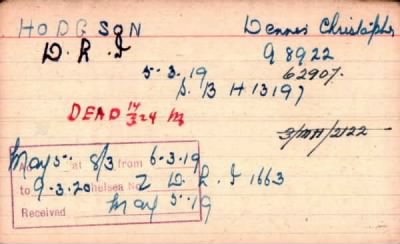 HODGSON Dennis Christopher
D. R. I 98922
5-3.19 62907.
S. B H 13197
DEAD 14/3-24
3/MH/2122
May 5. at 8/3 from 6-3.19
to 9-3.20 Chelsea No. 2 D. R. I 1663
Received May 5-19